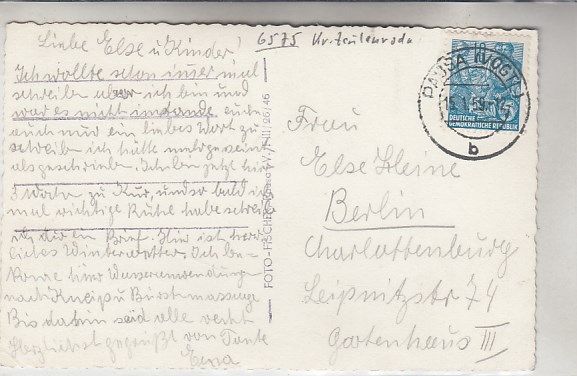 Liebe Else u Kinder!
Ich wollte schon immer mal
schreiben aber ich bin und
war es nicht imstande. Euch
auch nur ein liebes Wort zu
schreiben ich hätte mehr geweint
als geschrieben. Ich bin jetzt hier
3 Wochen zu Kur, und so bald ich
mal richtige Ruhe habe schreibe
ich dir ein Brief. Hier ist herr-
liches Winterwetter. Ich be-
komme hier Wasseranwendungen
nach Kneip u Bürstmassage
Bis dahin seid alle recht
Herzlichst gegrüßt von Tante
Erna
6575 Kr. Zeulenroda
FOTO-FISCHER
PAUSA (VOGTL)
b
DEUTSCHE
DEMOKRATISCHE REPUBLIK
Frau
Else Heine
Berlin
Charlottenburg
Leipnitzstr 74
Gartenhaus III